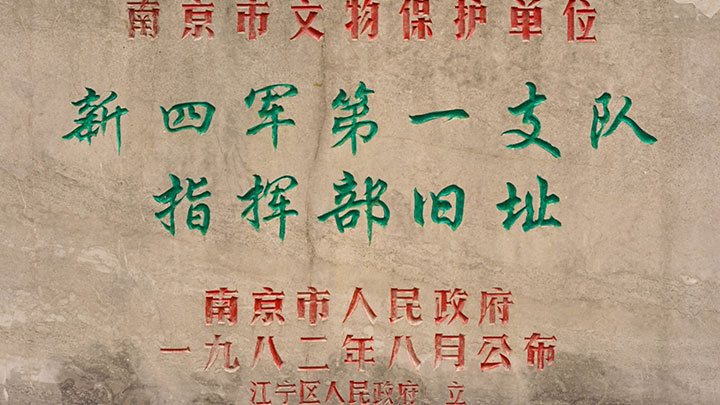 南京市文物保护单位
新四军第一支队
指挥部旧址
南京市人民政府
一九八二年八月公布
江宁区人民政府 立